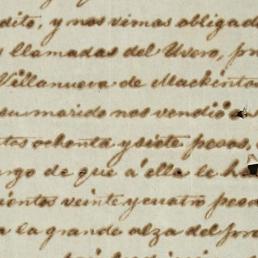 dito, y nos vimos obligado
y llamadas del Uvero, pr
Villanueva de Mackinto
su marido nos vendió a
tos ochenta y siete pesos,
rgo de que á ella le ha
cientos veinte y cuatro peso
a la grande alza del